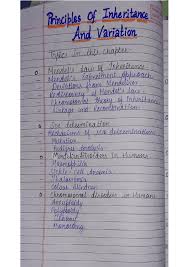 Principles Of Inheritance
And Variation
Topics In this chapter
Mendel's Law of Inheritance
Mendel's Experiment Approach
Deviations from Mendelism
Rediscovery of Mendel's Law
Chromosomal Theory of Inheritance
Linkage and Recombination
Sex determination
Mechanisms of sex determination
Mutation
Pedigree Analysis
Mendelian disorders in Humans
Haemophilia
Sickle-Cell Anaemia
Thalassemia
Colour Blindness
Chromosomal disorders in Humans
Aneuploidy
Polyploidy
Trisomy
Monosomy